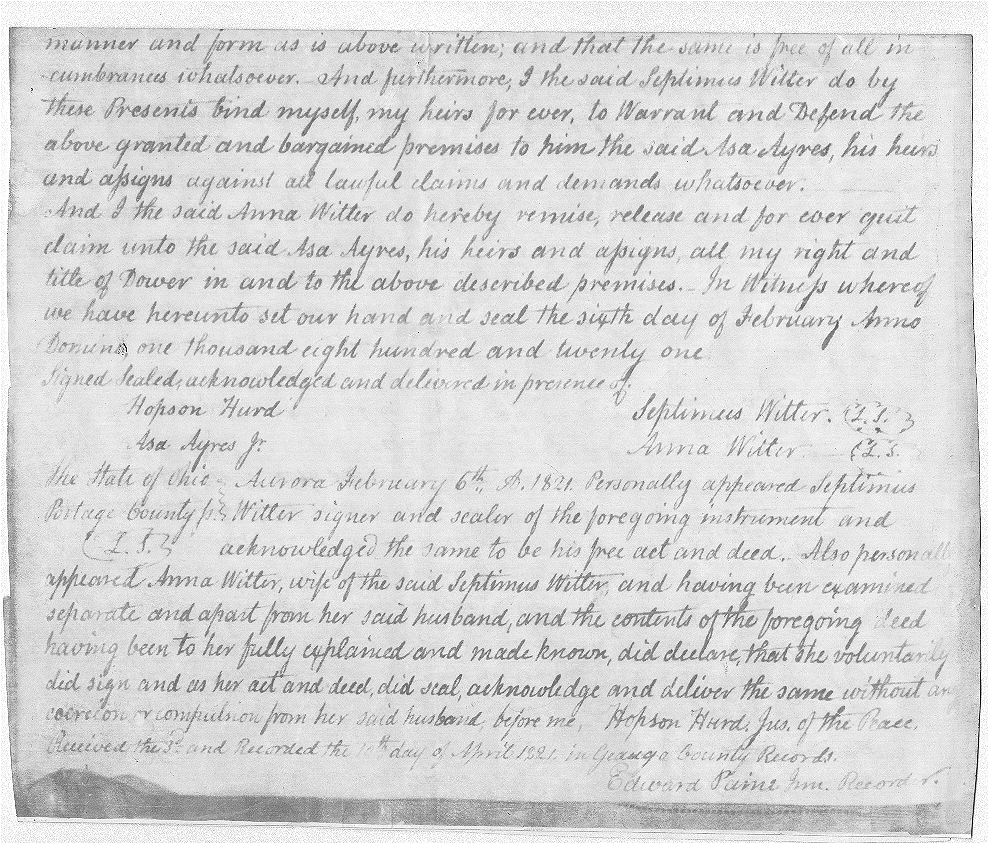 manner and form as is above written; and that the same is free of all in
cumbrances whatsoever. And furthermore, I the said Septimus Witter do by
these Presents bind myself, my heirs for ever, to Warrant and Defend the
above granted and bargained premises to him the said Asa Ayres, his heirs
and assigns against all lawful claims and demands whatsoever.
And I the said Anna Witter do hereby remise, release and for ever quit
claim unto the said Asa Ayres, his heirs and assigns, all my right and
title of Dower in and to the above described premises. - In Witness whereof
we have hereunto set our hand and seal the sixth day of February Anno
Domini one thousand eight hundred and twenty one
Signed Sealed, acknowledged and delivered in presence of
Hopson Hurd
Septimus Witter. (L.S.)
Asa Ayres Jr.
Anna Witter. (L.S.)
The State of Ohio Aurora February 6th, A. 1821. Personally appeared Septimus
Portage County ss. Witter signer and sealer of the foregoing instrument and
(L.S.) acknowledged the same to be his free act and deed. Also personally
appeared Anna Witter, wife of the said Septimus Witter, and having been examined
separate and apart from her said husband, and the contents of the foregoing deed
having been to her fully explained and made known, did declare, that she voluntarily
did sign and as her act and deed, did seal, acknowledge and deliver the same without any
coercion or compulsion from her said husband, before me, Hopson Hurd. Jus. of the Peace.
Received the 3d and Recorded the 10th day of April 1821. in Geauga County Records.
Edward Paine Jun. Recorder.